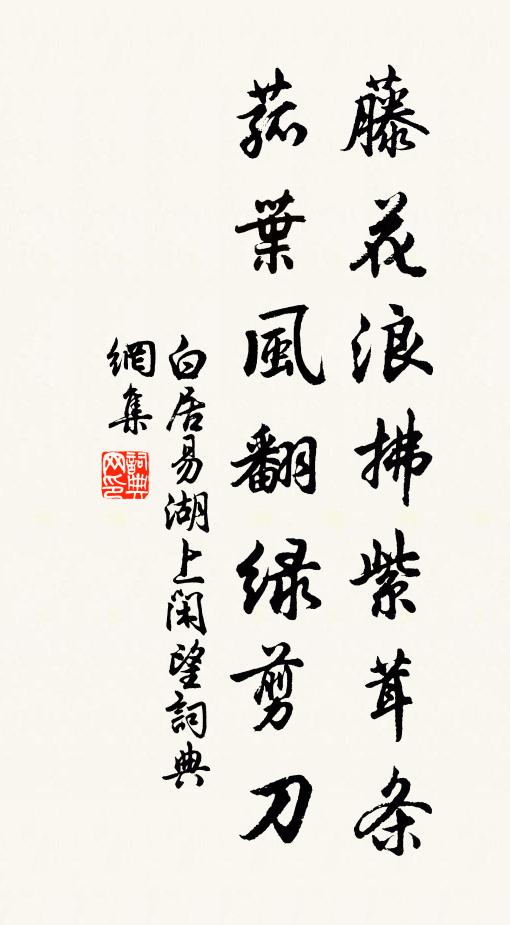 藤花浪拂紫茸条
菰葉風翻緑剪刀
白居易湖上閑望詞典
網集
詞典
网印